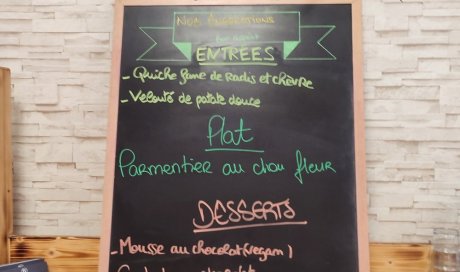 ENTREES
- Quiche fane de Radis et chèvre
- Velouté de patate douce
Plat
Parmentier au chou fleur
DESSERTS
- Mousse au chocolat (vegan)